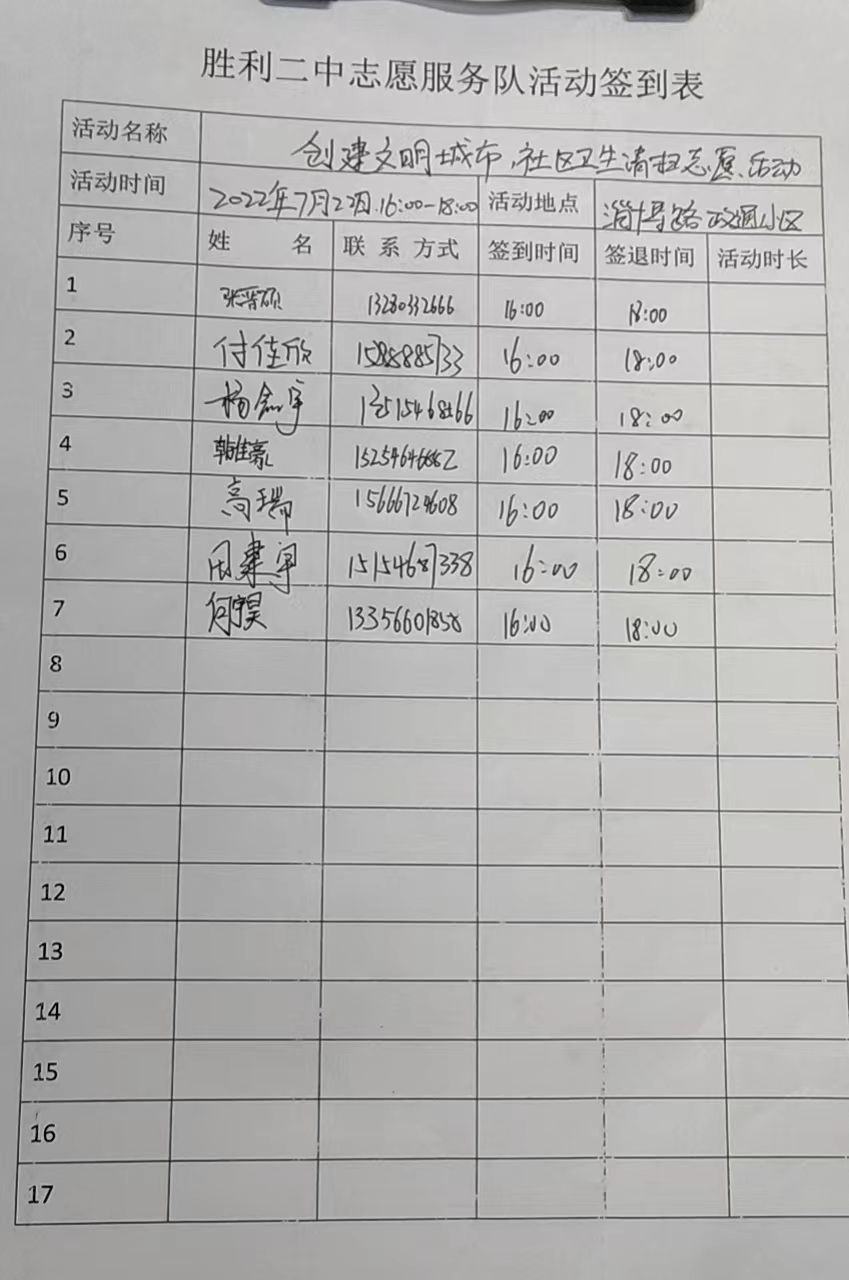 胜利二中志愿服务队活动签到表
活动名称 创建文明城市,社区卫生清扫志愿活动
活动时间 2022年7月22日.16:00-18:00 活动地点 政通小区
序号 姓 名 联系方式 签到时间 签退时间 活动时长
1 13280332666 16:00 18:00
2 付佳欣 16:00 18:00
3 杨鑫宇 16:00 18:00
4 16:00 18:00
5 高瑞 16:00 18:00
6 周建宇 15154687338 16:00 18:00
7 13356601858 16:00 18:00
8
9
10
11
12
13
14
15
16
17